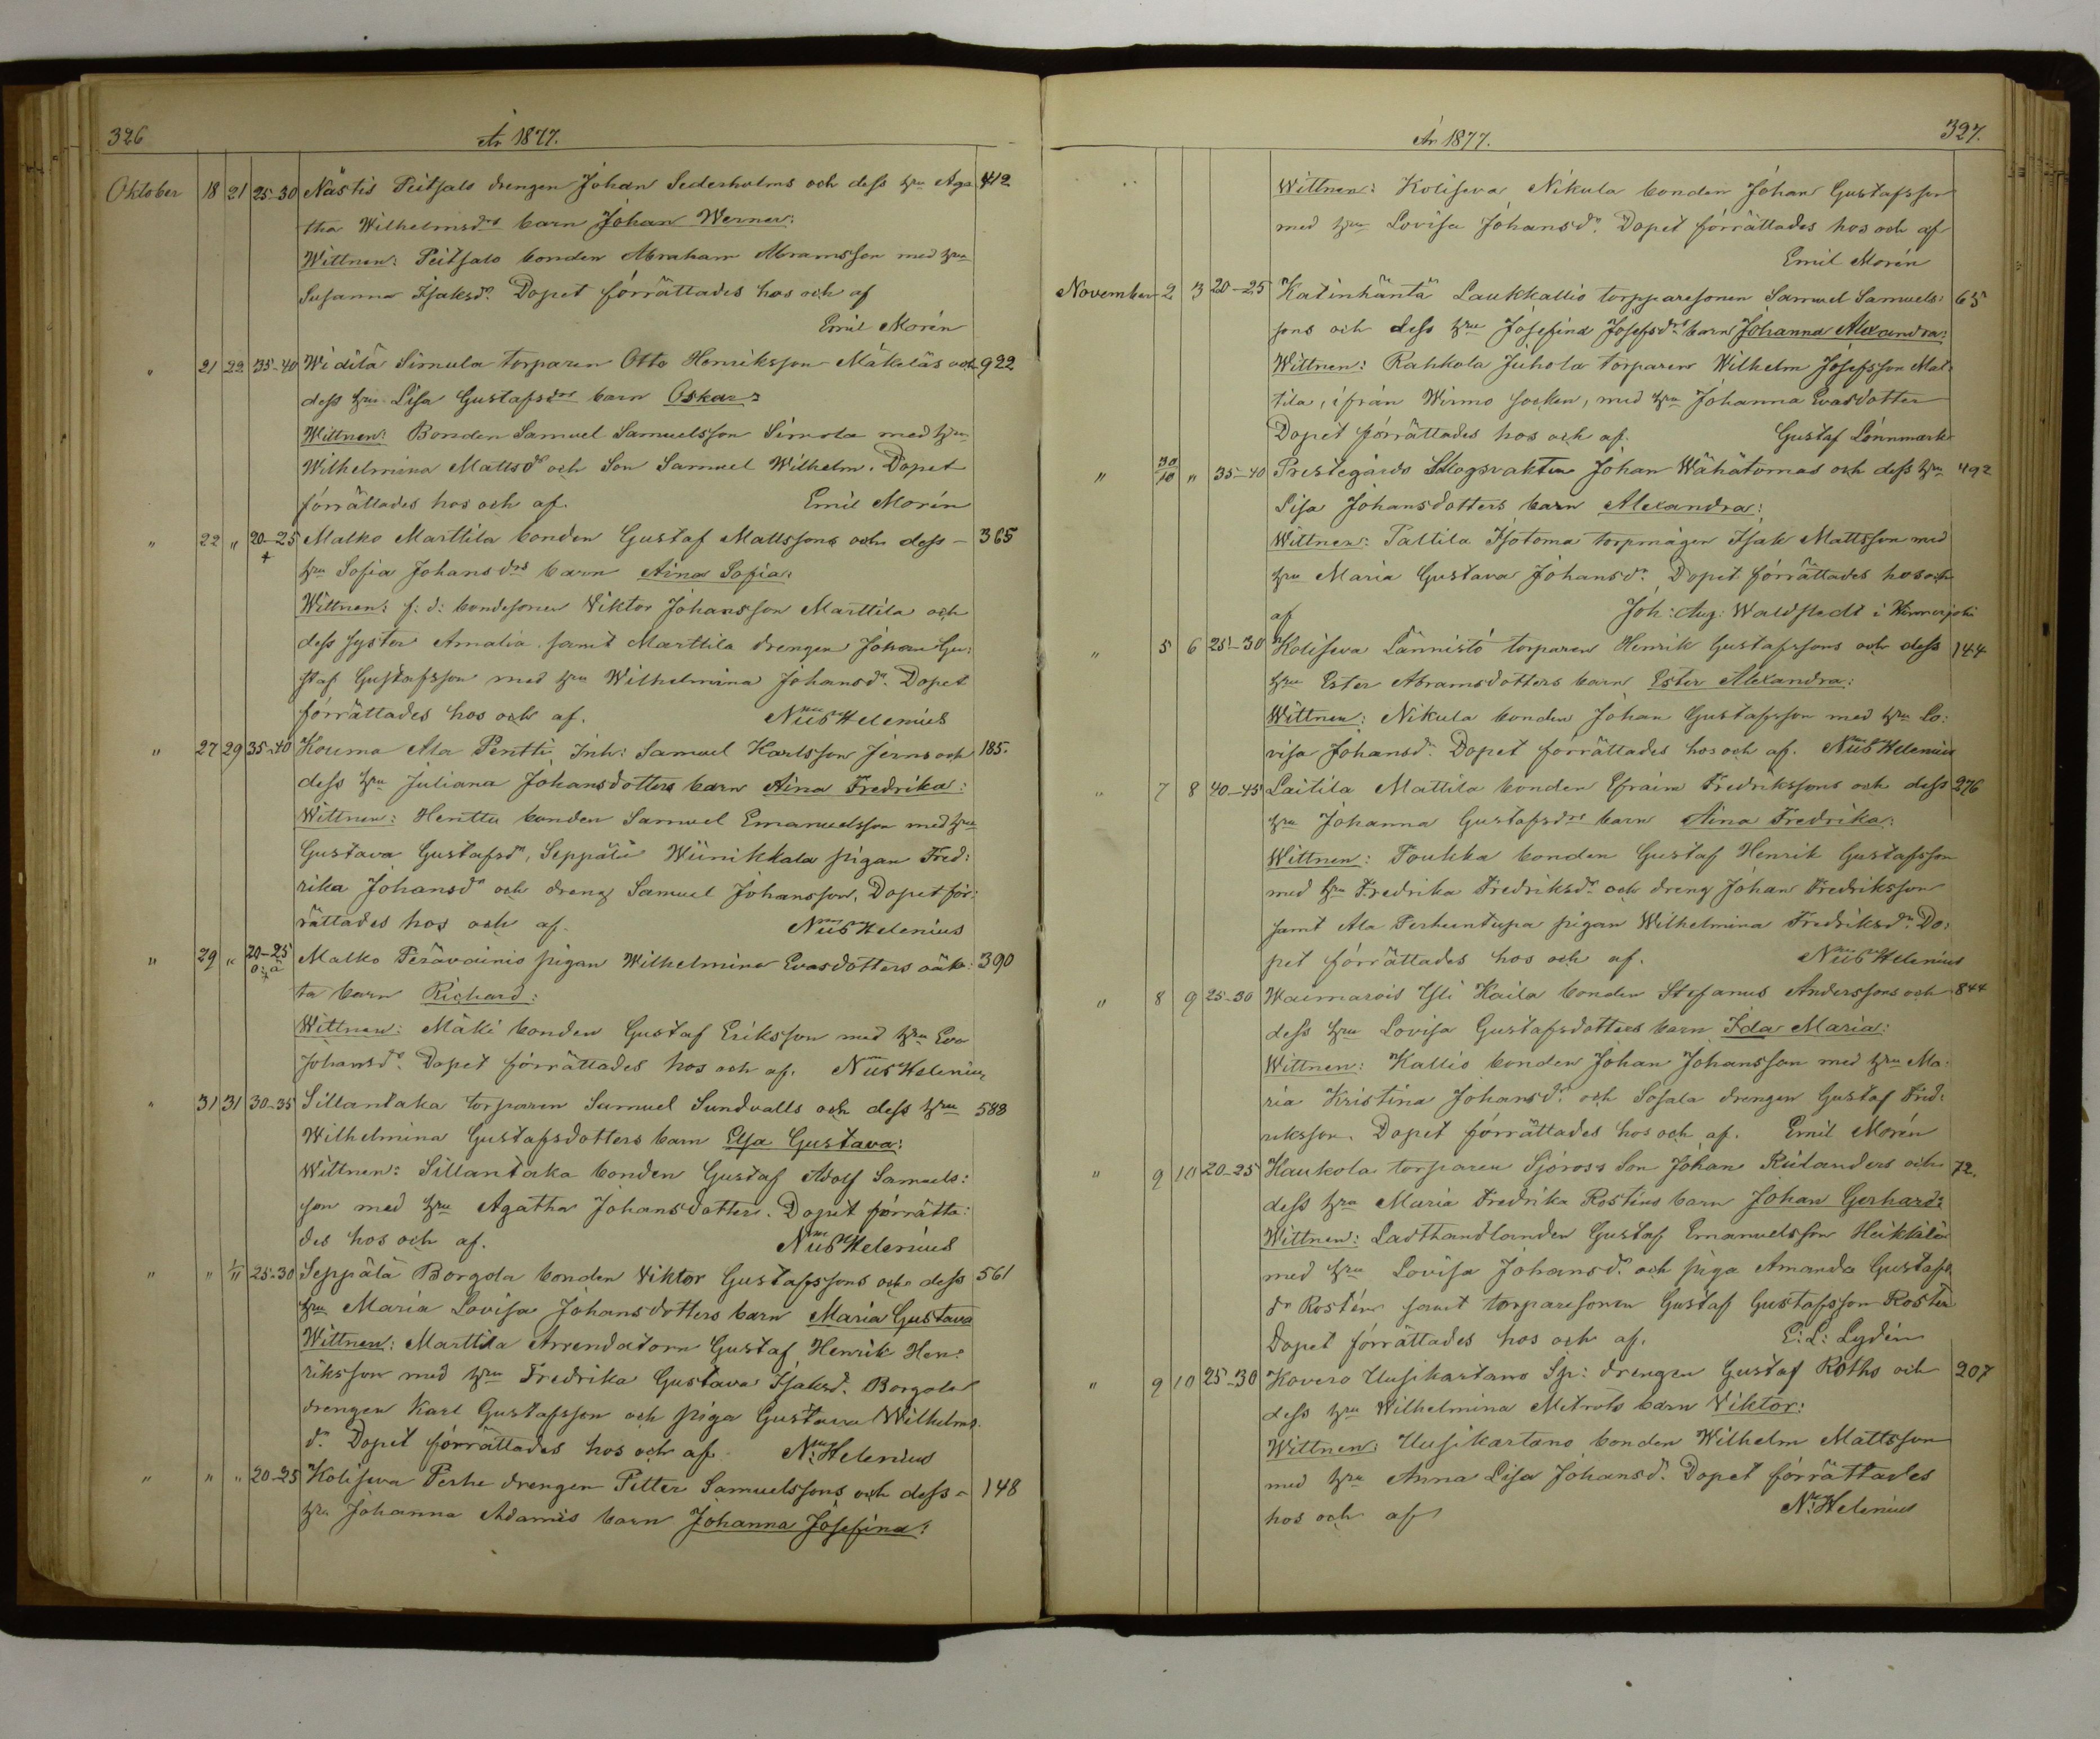 326
År 1877.
Oktober 18 21 25-30 Nästis Peitsalo drengen Johan Sederholms och dess hru Aga- 412
tha Wilhelmsdrs barn Johan Werner:
Wittnen: Peitsalo bonden Abraham Abramsson med hru
Susanna Isaksdr. Dopet förrättades hos och af
Emil Morén
" 21 22 35-40 Widilä Simula torparen Otto Henriksson Mäkeläs och 922
dess hru Lisa Gustafsdrs barn Oskar:
Wittnen: Bonden Samuel Samuelsson Simola med hru
Wilhelmina Mattsdr och Son Samuel Wilhelm. Dopet
förrättades hos och af. Emil Morén
" 22 " 20-25 Malko Marttila bonden Gustaf Mattssons och dess - 365
+
hru Sofia Johansdrs barn Aina Sofia:
Wittnen: f: d: bondesonen Viktor Johansson Marttila och
dess syster Amalia samt Marttila drengen Johan Gu:
staf Gustafsson med hru Wilhelmina Johansdr. Dopet
förrättades hos och af. Nils Helenius
" 27 29 35-40 Kouma Ala Pentti Inh: Samuel Karlsson Jerns och 185.
dess hru Juliana Johansdotters barn Aina Fredrika:
Wittnen: Henttu bonden Samuel Emanuelsson med hru
Gustava Gustafsdr, Seppälä Wiinikkala pigan Fred:
rika Johansdr och dreng Samuel Johansson. Dopet för:
rättades hos och af. Nils Helenius
" 29 " 20-25 Malko Perävainio pigan Wilhelmina Evasdotters oäk: 390
o: ä
+
ta barn Richard:
Wittnen: Mäki bonden Gustaf Eriksson med hru Eva
Johansdr. Dopet förrättades hos och af. Nils Helenius
" 31 31 30-35 Sillantaka torparen Samuel Sundvalls och dess hru 588
Wilhelmina Gustafsdotters barn Elsa Gustava:
Wittnen: Sillantaka bonden Gustaf Adolf Samuels:
son med hru Agatha Johansdotter. Dopet förrätta:
des hos och af. Nils Helenius
" " 1/11 25-30 Seppälä Borgola bonden Viktor Gustafssons och dess 561
hru Maria Lovisa Johansdotters barn Maria Gustava
Wittnen: Marttila Arrendatorn Gustaf Henrik Hen:
riksson med hru Fredrika Gustava Isaksd. Borgola
drengen Karl Gustafsson och piga Gustava Wilhelms
dr. Dopet förrättades hos och af. N: Helenius
" " " 20-25 Kolseva Perhe drengen Petter Samuelssons och dess - 148
hru Johanna Adamis barn Johanna Josefina:
327.
År 1877.
Wittnen: Koliseva Nikula bonden Johan Gustafsson
med hru Lovisa Johansdr. Dopet förrättades hos och af
Emil Morén
November 2 3 20-25 Katinhäntä Laukkallio torpparesonen Samuel Samuels: 65
sons och dess hru Josefina Josefsdrs barn Johanna Alexandra:
Wittnen: Rahkola Juhola torparen Wilhelm Josefsson Mat-
tila, ifrån Wirmo socken, med hru Johanna Evasdotter
Dopet förrättades hos och af. Gustaf Lönnmark
" 30/10 " 35-40 Prestegårds Skogsvakten Johan Wähätornas och dess hru 492
Lisa Johansdotters barn Alexandra:
Wittnen: Paltila Isotoma torpmågen Isak Mattsson med
hru Maria Gustava Johansdr. Dopet förrättades hos och
af Joh: Aug: Waldstedt i Hinnerjoki
" 5 6 25-30 Koliseva Lännistö torparen Henrik Gustafssons och dess 144
hru Ester Abramsdotters barn Ester Alexandra:
Wittnen: Nikula bonden Johan Gustafsson med hru Lo:
visa Johansdr. Dopet förrättades hos och af. Nils Helenius
" 7 8 40-45 Laitila Mattila bonden Efraim Fredrikssons och dess 276
hru Johanna Gustafsdrs barn Aina Fredrika:
Wittnen: Toukka bonden Gustaf Henrik Gustafsson
med hru Fredrika Fredriksdr och dreng Johan Fredriksson
samt Ala Perhentupa pigan Wilhelmina Fredriksdr. Do:
pet förrättades hos och af. Nils Helenius
" 8 9 25-30 Waimarois Yli Kaila bonden Stefanus Anderssons och 844
dess hru Lovisa Gustafsdotters barn Ida Maria:
Wittnen: Kallio bonden Johan Johansson med hru Ma-
ria Kristina Johansdr. och Sofala drengen Gustaf Fred:
riksson. Dopet förrättades hos och af. Emil Morén
" 9 10 20-25 Haukola torparen Sjöross Son Johan Rülanders och 72.
dess hru Maria Fredrika Rostens barn Johan Gerhard:
Wittnen: Ladthandlanden Gustaf Emanuelsson Heikkilä
med hru Lovisa Johansdr. och piga Amanda Gustafs
dr Rostén samt torparesonen Gustaf Gustafsson Rostén
Dopet förrättades hos och af. E: L: Lydén
" 9 10 25-30 Kovero Uusikartano Sp: drengen Gustaf Roths och 207
dess hru Wilhelmina Mitrots barn Viktor:
Wittnen: Uusikartano bonden Wilhelm Mattsson
med hru Anna Lisa Johansdr. Dopet förrättades
hos och af N: Helenius